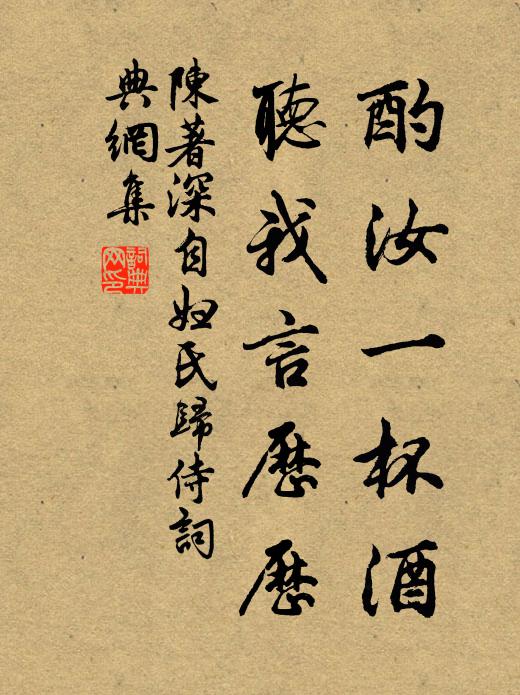 酌汝一杯酒
聽我言歷歷
陳著深自妞氏歸侍詞
典網集
詞典網印